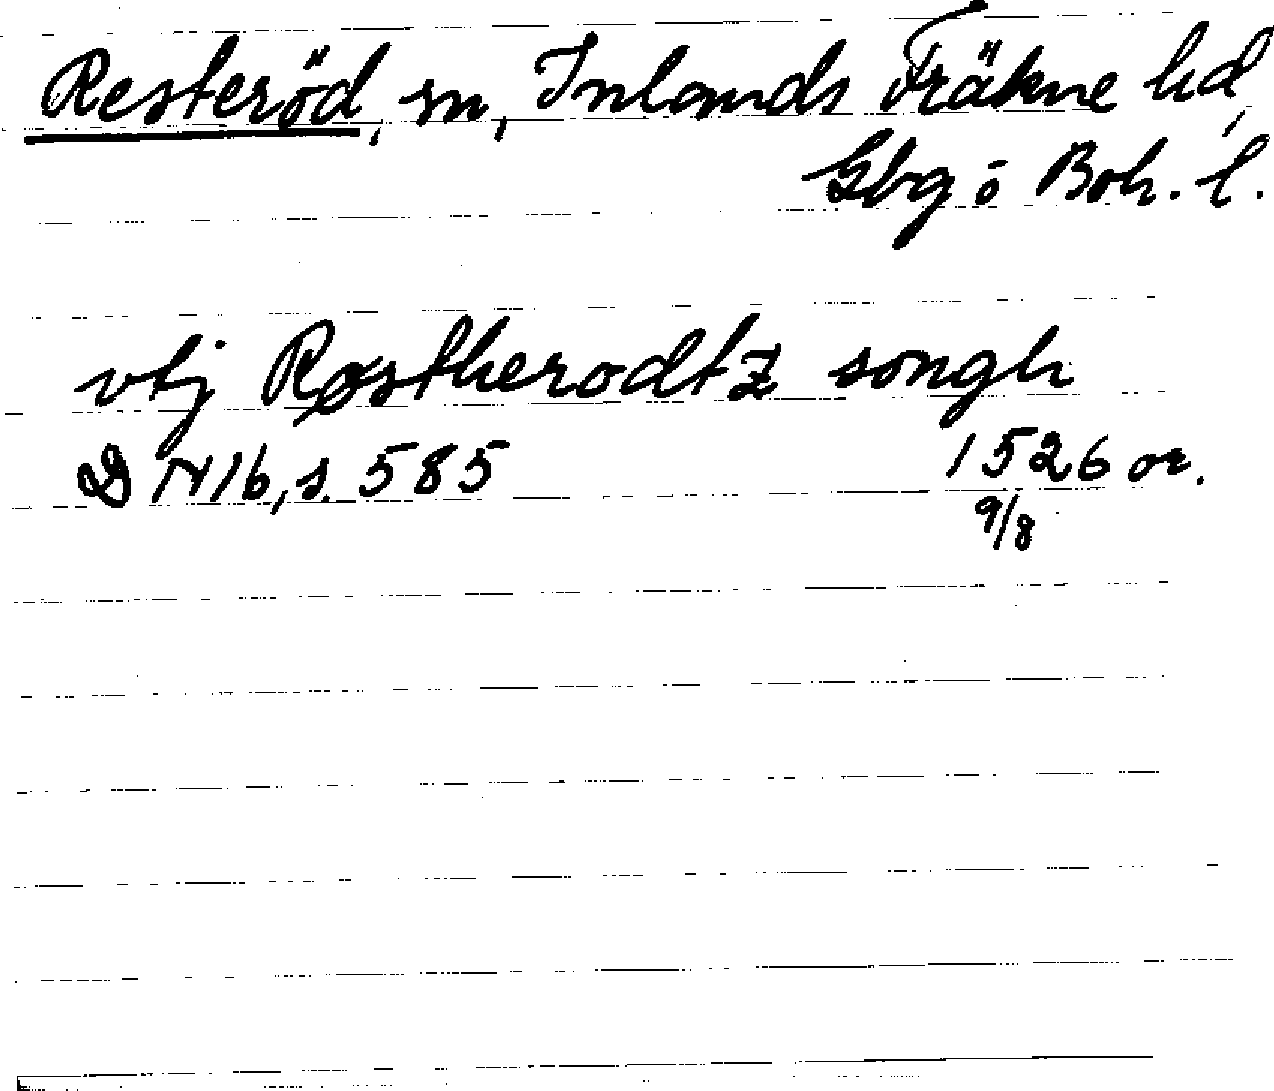 Resteröd, sn, Inlands Fräkne hd,
Gbg o Boh. l.
vtj Røstherodtz songh
DN 16, s. 585 1526 or.
9/8